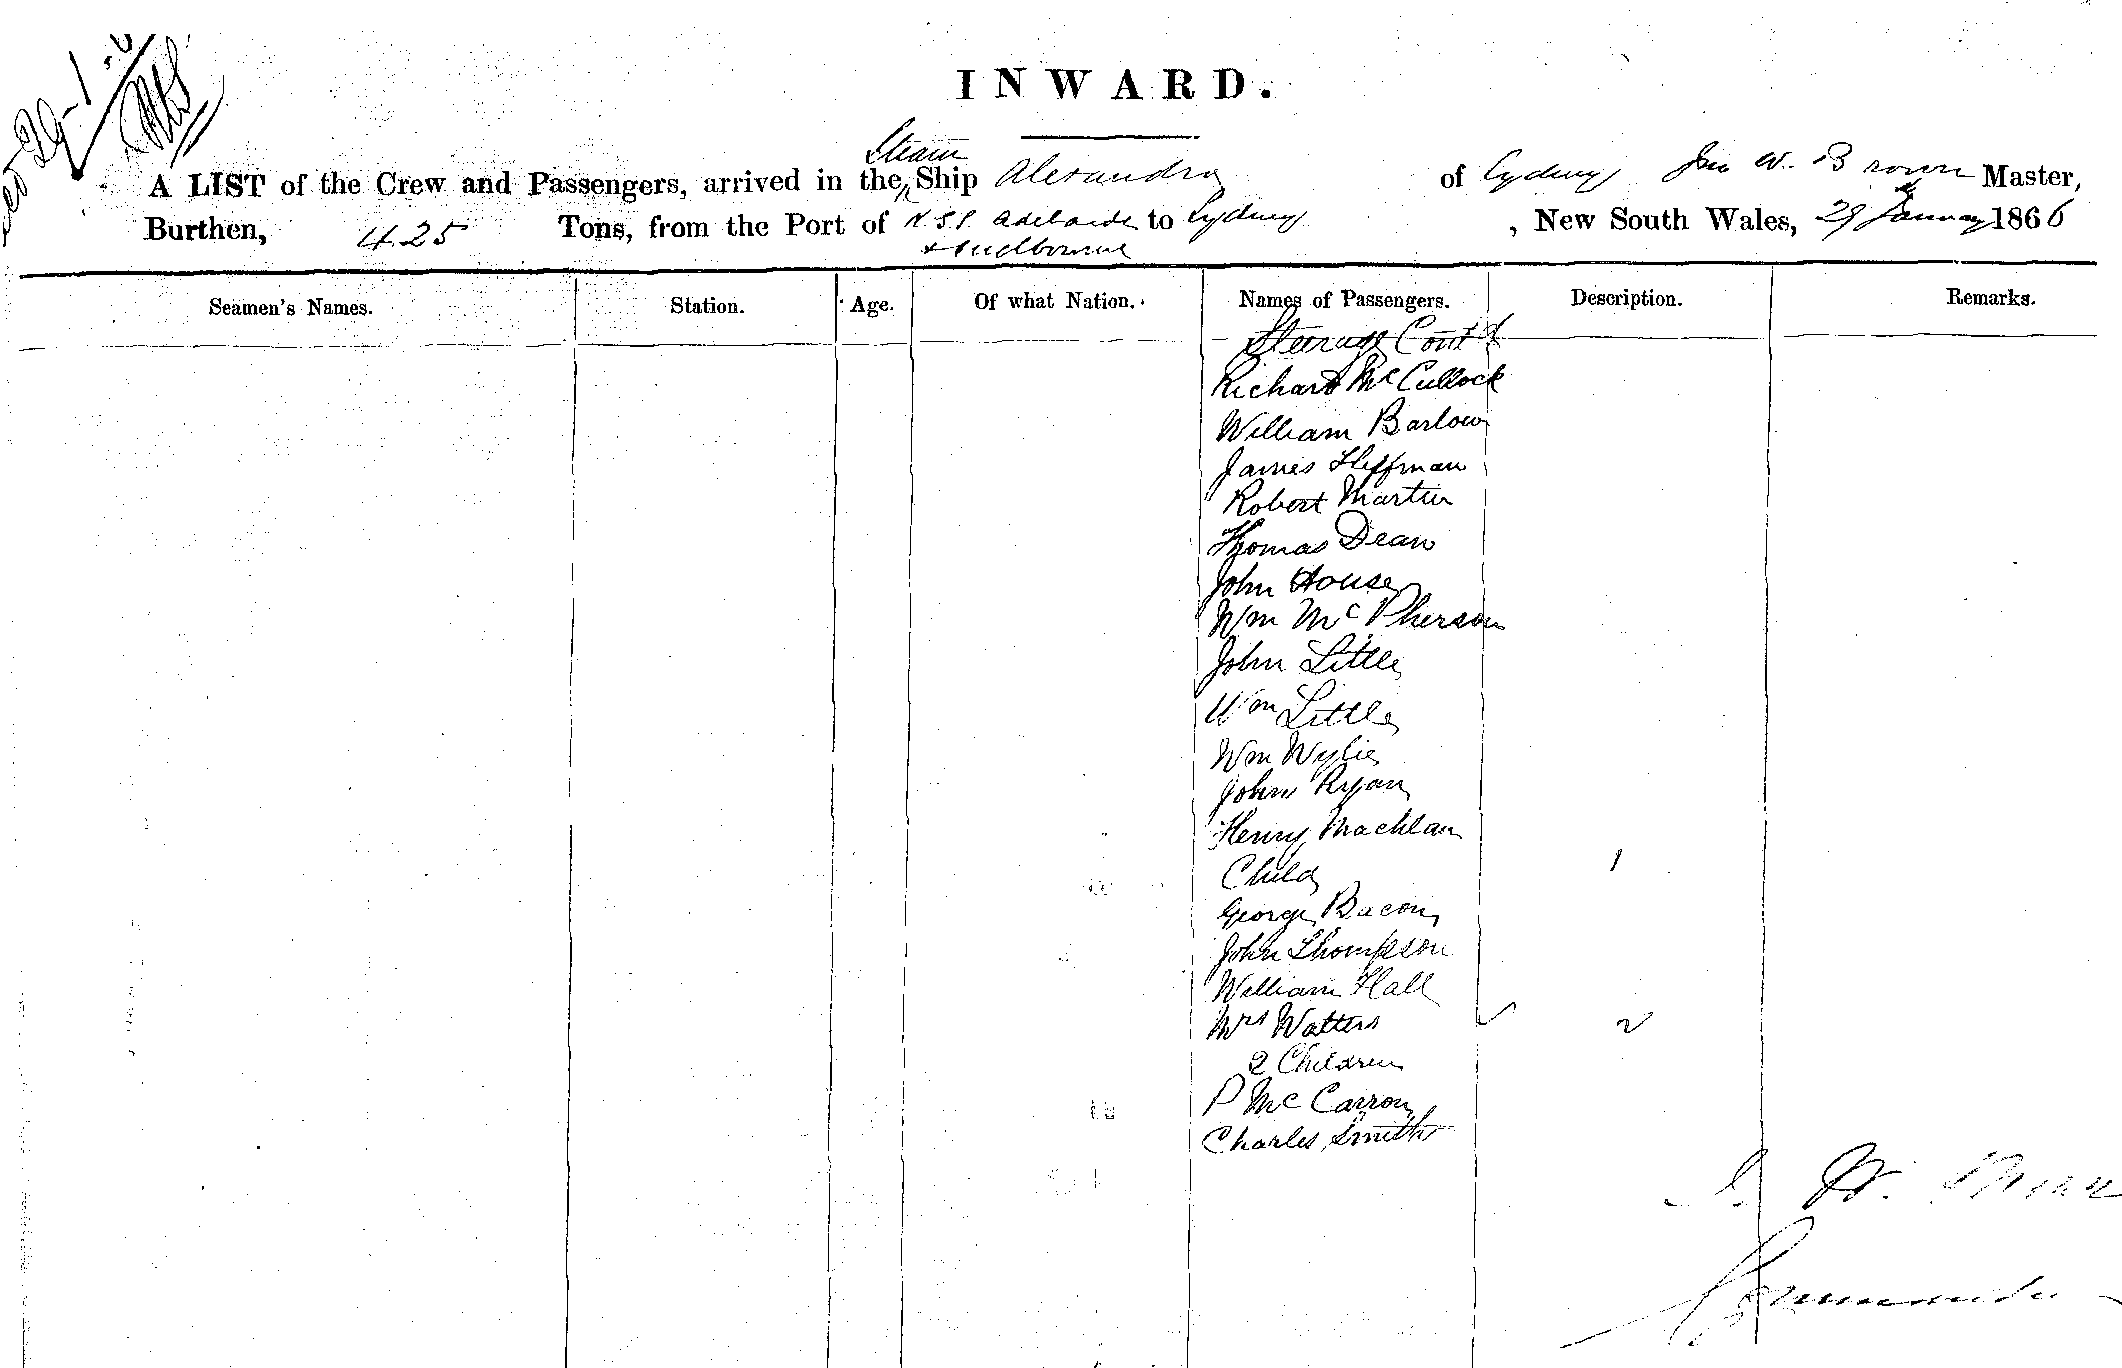 29-1-6
INWARD.
Steam
A LIST of the Crew and Passengers, arrived in the Ship Alexandra of Sydney Jno W. Brown Master,
Burthen, 425 Tons, from the Port of Adelaide to Sydney, New South Wales, 29 January 1866
& Melbourne
Seamen's Names. Station. Age. Of what Nation. Names of Passengers. Description. Remarks.
Steerage Contd
Richard McCullock
William Barlow
James Heffman
Robert Martin
Thomas Dean
John House
Wm McPherson
John Little
Wm Little
Wm Wylie
John Ryan
Henry Machlan
Child 1
George Bacon
John Thompson
William Hall
Mrs Watters 2
2 Children
P McCarron
Charles Smith
J. W. Brown
Commander